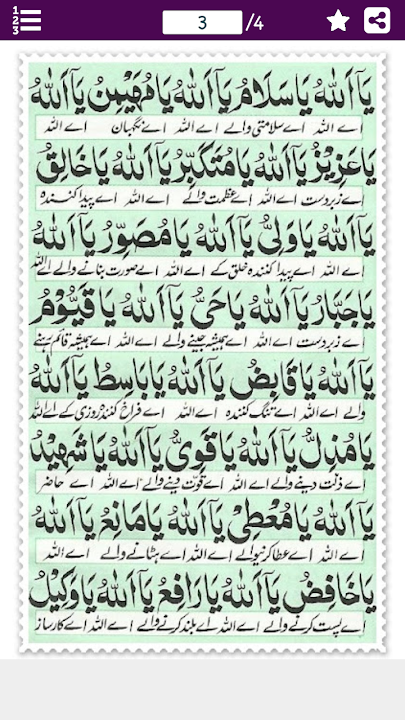 3 /4
یَا اَللّٰهُ یَا سَلَامُ یَا اَللّٰهُ یَا مُهَیْمِنُ یَا اَللّٰهُ
اے اللہ اے سلامتی والے اے اللہ اے نگہبان اے اللہ
یَا عَزِیْزُ یَا اَللّٰهُ یَا مُتَكَبِّرُ یَا اَللّٰهُ یَا خَالِقُ
اے زبردست اے اللہ اے عظمت والے اے اللہ اے پیدا کنندہ
یَا اَللّٰهُ یَا وَلِیُّ یَا اَللّٰهُ یَا مُصَوِّرُ یَا اَللّٰهُ
اے اللہ اے پیدا کنندہ خلق کے اے اللہ اے صورت بنانے والے اے اللہ
یَا جَبَّارُ یَا اَللّٰهُ یَا حَیُّ یَا اَللّٰهُ یَا قَیُّوْمُ
اے زبردست اے اللہ اے ہمیشہ جینے والے اے اللہ اے ہمیشہ قائم رہنے
یَا اَللّٰهُ یَا قَابِضُ یَا اَللّٰهُ یَا بَاسِطُ یَا اَللّٰهُ
والے اے اللہ اے تنگ کنندہ اے اللہ اے فراخ کنندہ روزی کے اے اللہ
یَا مُذِلُّ یَا اَللّٰهُ یَا قَوِیُّ یَا اَللّٰهُ یَا شَهِیْدُ
اے ذلت دینے والے اے اللہ اے قوت دینے والے اے اللہ اے حاضر
یَا اَللّٰهُ یَا مُعْطِیْ یَا اَللّٰهُ یَا مَانِعُ یَا اَللّٰهُ
اے اللہ اے عطا کرنیوالے اے اللہ اے ہٹانے والے اے اللہ
یَا خَافِضُ یَا اَللّٰهُ یَا رَافِعُ یَا اَللّٰهُ یَا وَكِیْلُ
اے پست کرنے والے اے اللہ اے بلند کرنے والے اے اللہ اے کارساز